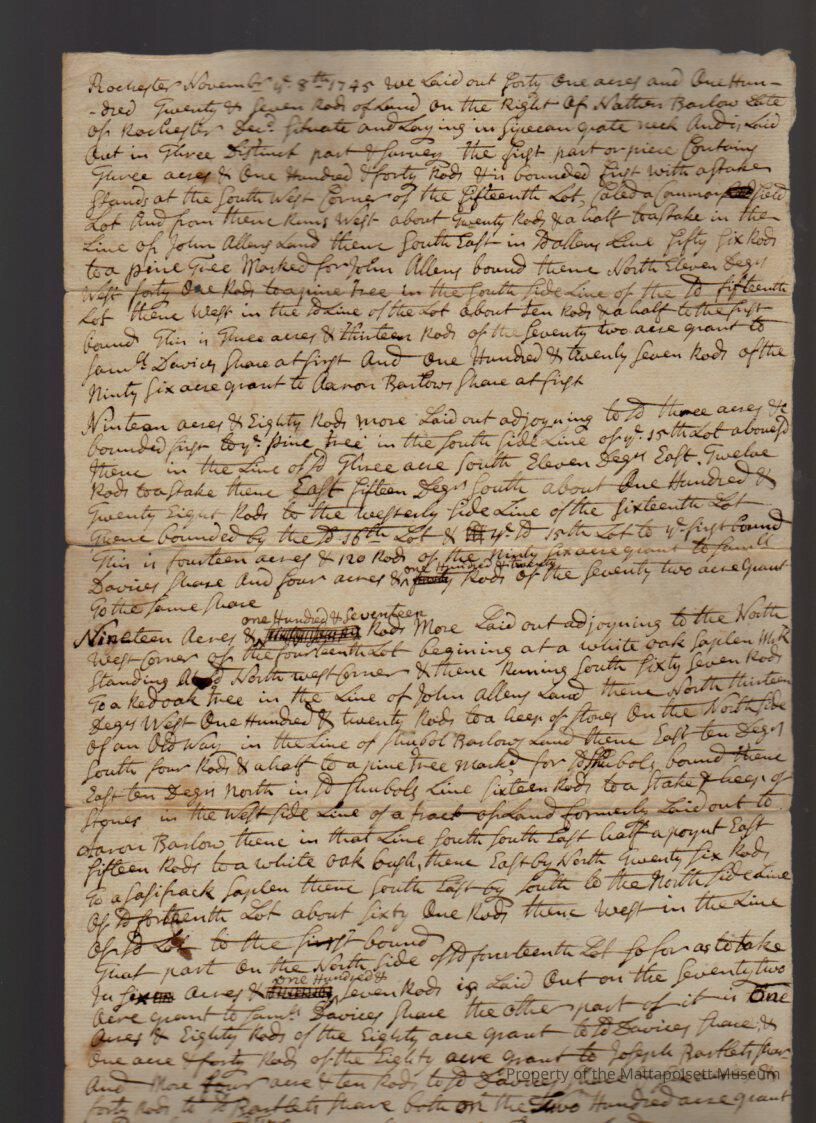 Rochester Novembr ye 8th 1745 we Laid out forty One acres and One Hun-
-dred Twenty & Seven Rods of Land On the Right Of Nathan Barlow Late
Of Rochester Decd. Situate and Laying in neck And is Laid
Out in Three Distinct part & Survey the first part or piece Containg
Three acres & One Hundred & forty Rods & is bounded first with a Stake
Stands at the South West Corner of the fifteenth Lot, Caled a Common field
Lot And from thence Runs West about Twenty Rods & a half to a Stake in the
Line of John Allens Land thence South East in Sd allens Line fifty Six Rods
to a pine Tree Marked for John Allens bound thence North Eleven Degrs
West forty One Rods to a pine Tree in the South Side Line of the Sd fifteenth
Lot thence West in the Sd Line of the Lot about Ten Rods & a half to the first
bound This is Three acres & Thirteen Rods of the Seventy two acre grant to
Samll Davies Share at first And One Hundred & twenty Seven Rods of the
Ninty Six acre grant to Aaron Barlows Share at first
Ninteen acres & Eighty Rods more Laid out adjoyning to Sd three acres &c
bounded first by ye pine tree in the South Side Line of ye 15th Lot abovesd
thence in the Line of Sd Three acre South Eleven Degrs East Twelve
Rods to a Stake thence East fifteen Degrs South about One Hundred &
Twenty Eight Rods to the westerly Side Line of the Sixteenth Lot
Thence bounded by the Sd 16th Lot & ye Sd 15th Lot to ye first bound
This is fourteen acres & 120 Rods of the Ninty Six acre grant to Samll
Davies Share And four acres & one Hundred & twenty Rods Of the Seventy two acre grant
To the Same Share
one Hundred & Seventeen
Nineteen Acres & Rods More Laid out adjoyning to the North
West Corner of the fourteenth Lot begining at a white oak Saplen Mrk
Standing at Sd North west Corner & thence Runing South Sixty Seven Rods
To a Red oak tree in the Line of John Allens Land thence North thirteen
Degrs West One Hundred & twenty Rods to a heep of Stones On the North Side
Of an Old Way in the Line of Shubol Barlows Land thence East ten Degrs
South four Rods & a half to a pine tree Marked for Sd Shubols bound thence
East ten Degrs North in Sd Shubols Line Sixteen Rods to a Stake & heep of
Stones in the West Side Line of a tract of Land formerly Laid out to
Aaron Barlow thence in that Line South South East half a poynt East
fifteen Rods to a white oak bush, thence East by North Twenty Six Rods
To a Sasifrack Saplen thence South East by South to the North Side Line
Of Sd forteenth Lot about Sixty One Rods thence West in the Line
Of Sd Lot to the first bound
That part On the North Side of Sd fourteenth Lot So far as to take
In Six Acres & one Hundred & Seven Rods is Laid Out on the Seventy two
Acre grant to Samll Davies Share the other part of it is One
Acres & Eighty Rods of the Eighty acre grant to Sd Davies Share, &
One acre & forty Rods of the Eighty acre grant to Joseph Bartlets Shar
And More four acre & ten Rods to Sd Davies
forty Rods to Sd Bartlets Share both on the Two Hundred acre grant
Property of the Mattapoisett Museum